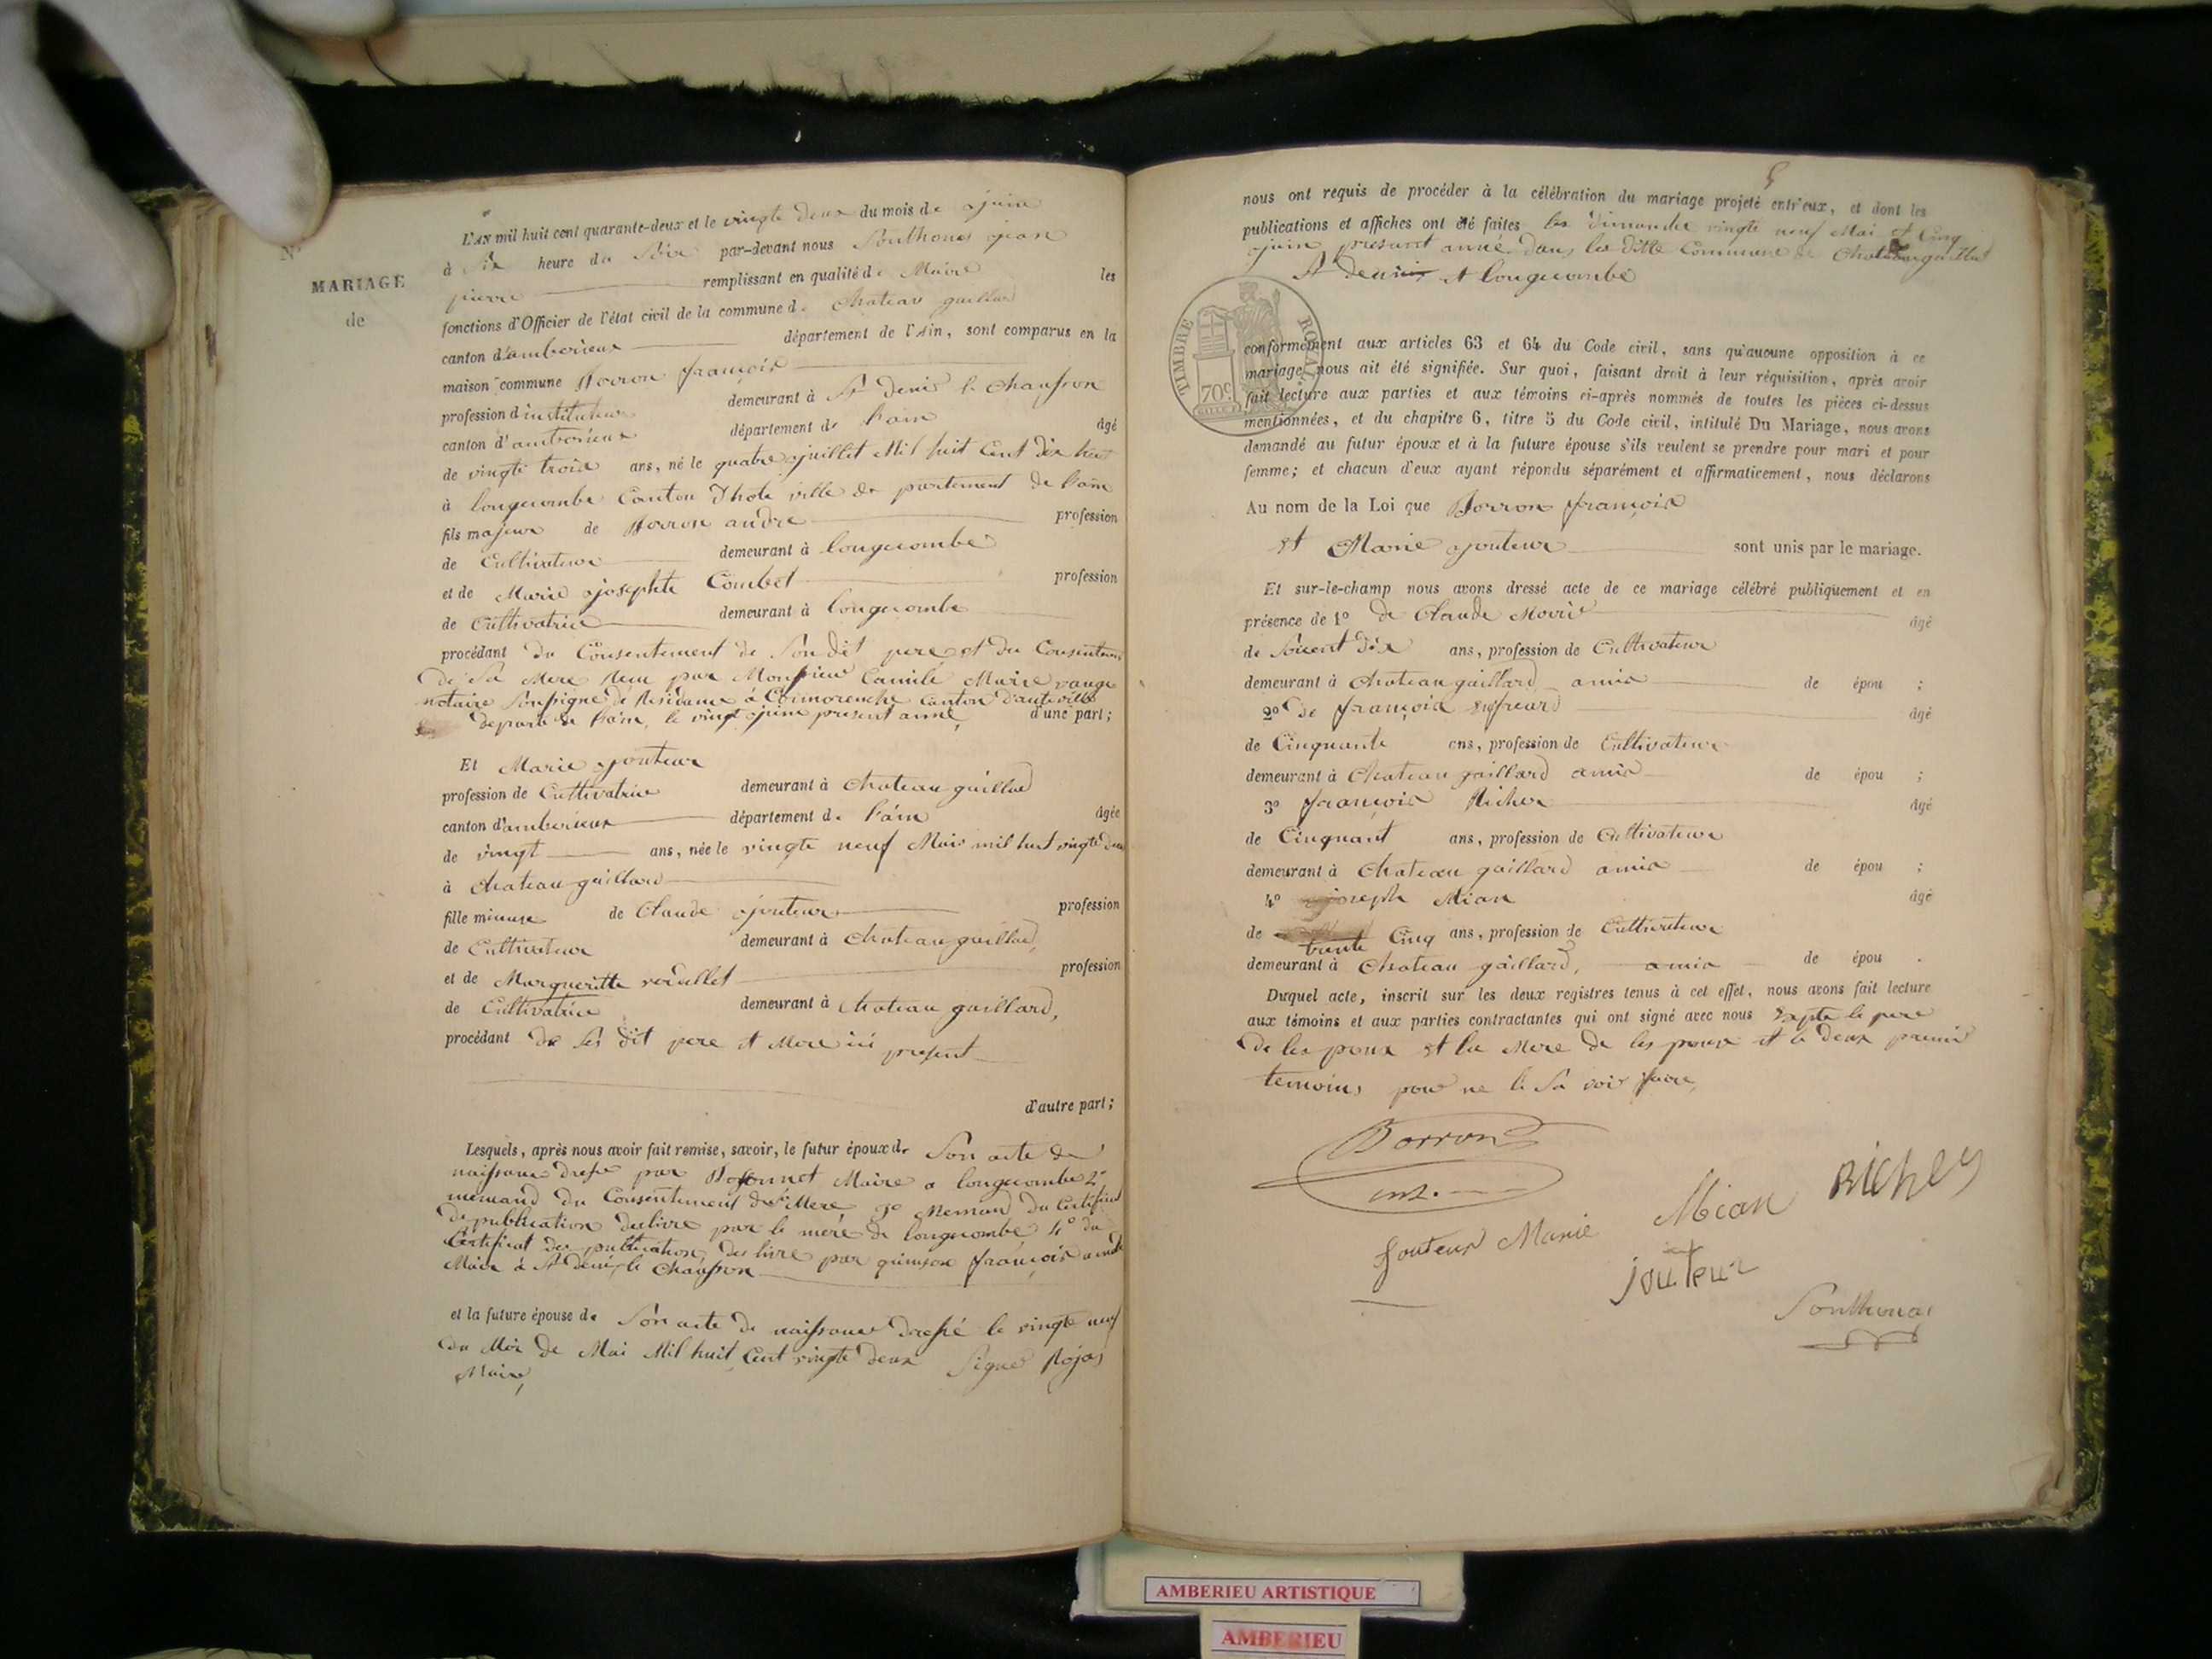 N°
MARIAGE
de
L'AN mil huit cent quarante-deux et le vingte deux du mois de juin
à Six heure du Soir par-devant nous Southonas jean
pierre remplissant en qualité de Maire les
fonctions d'Officier de l'état civil de la commune de Chateau gaillard
canton d'amberieux département de l'Ain, sont comparus en la
maison commune Borron françois
profession d'instituteur demeurant à St denis le Chausson
canton d'amberieux département de l'ain âgé
de vingte trois ans, né le quatre juillet Mil huit Cent dix huit
à longecombe Canton Dhote ville de partement de l'ain
fils majeur de Borron andré profession
de Cultivateur demeurant à longecombe
et de Marie josephte Combet profession
de Cultivatrice demeurant à longecombe
procédant du Consentement de Son dit pere et du Consentement
de Sa Mere Recu par Monsieur Camile Marie
notaire Soussigné de Residance à Cormorenche Canton d'auteville
depart de l'ain, le vingt juin present anné, d'une part;
Et Marie jouteur
profession de Cultivatrice demeurant à Chateau gaillard
canton d'amberieux département de l'ain âgée
de vingt ans, née le vingte neuf Mais mil huit vingte deux
à Chateau gaillard
fille mineure de Claude jouteur profession
de Cultivateur demeurant à Chateau gaillard,
et de Margueritte profession
de Cultivatrice demeurant à Chateau gaillard,
procédant de Ses dit pere et Mere ici present
d'autre part;
Lesquels, après nous avoir fait remise, savoir, le futur époux de Son acte de
naissance dressé par Maire a longecombe 2°
du Consentement de Sa Mere 3° du Certificat
de publication delivre par le mere de longecombe 4° du
Certificat de publication, de livre par françois
Maire à St denis le Chausson
et la future épouse de Son acte de naissance dressé le vingte neuf
du Mois de Mai Mil huit Cent vingte deux Signé Rojas
Maire,
5
nous ont requis de procéder à la célébration du mariage projeté entr'eux, et dont les
publications et affiches ont été faites les dimanche vingte neuf Mai et Cinq
juin present anné dans les ditte Commune de Chateau gaillard
St denis et longecombe
TIMBRE ROYAL
70c
conformément aux articles 63 et 64 du Code civil, sans qu'aucune opposition à ce
mariage nous ait été signifiée. Sur quoi, faisant droit à leur réquisition, après avoir
fait lecture aux parties et aux témoins ci-après nommés de toutes les pièces ci-dessus
mentionnées, et du chapitre 6, titre 5 du Code civil, intitulé Du Mariage, nous avons
demandé au futur époux et à la future épouse s'ils veulent se prendre pour mari et pour
femme; et chacun d'eux ayant répondu séparément et affirmativement, nous déclarons
Au nom de la Loi que Borron françois
et Marie jouteur sont unis par le mariage.
Et sur-le-champ nous avons dressé acte de ce mariage célébré publiquement et en
présence de 1° de Claude Morie âgé
de Soicent dix ans, profession de Cultivateur
demeurant à Chateau gaillard amis de épou ;
2° de françois âgé
de Cinquante ans, profession de Cultivateur
demeurant à Chateau gaillard amis de épou ;
3° françois Richer âgé
de Cinquant ans, profession de Cultivateur
demeurant à Chateau gaillard amis de épou ;
4° joseph Mian âgé
de trente Cinq ans, profession de Cultivateur
demeurant à Chateau gaillard, amis de épou .
Duquel acte, inscrit sur les deux registres tenus à cet effet, nous avons fait lecture
aux témoins et aux parties contractantes qui ont signé avec nous Septe le pere
de les poux et la Mere de les pouse et le deux premie
temoins pour ne le Sa voir faire,
Borron
inst.
Mian Richer
Jouteur Marie
jouteur
Southonas
AMBERIEU ARTISTIQUE
AMBERIEU